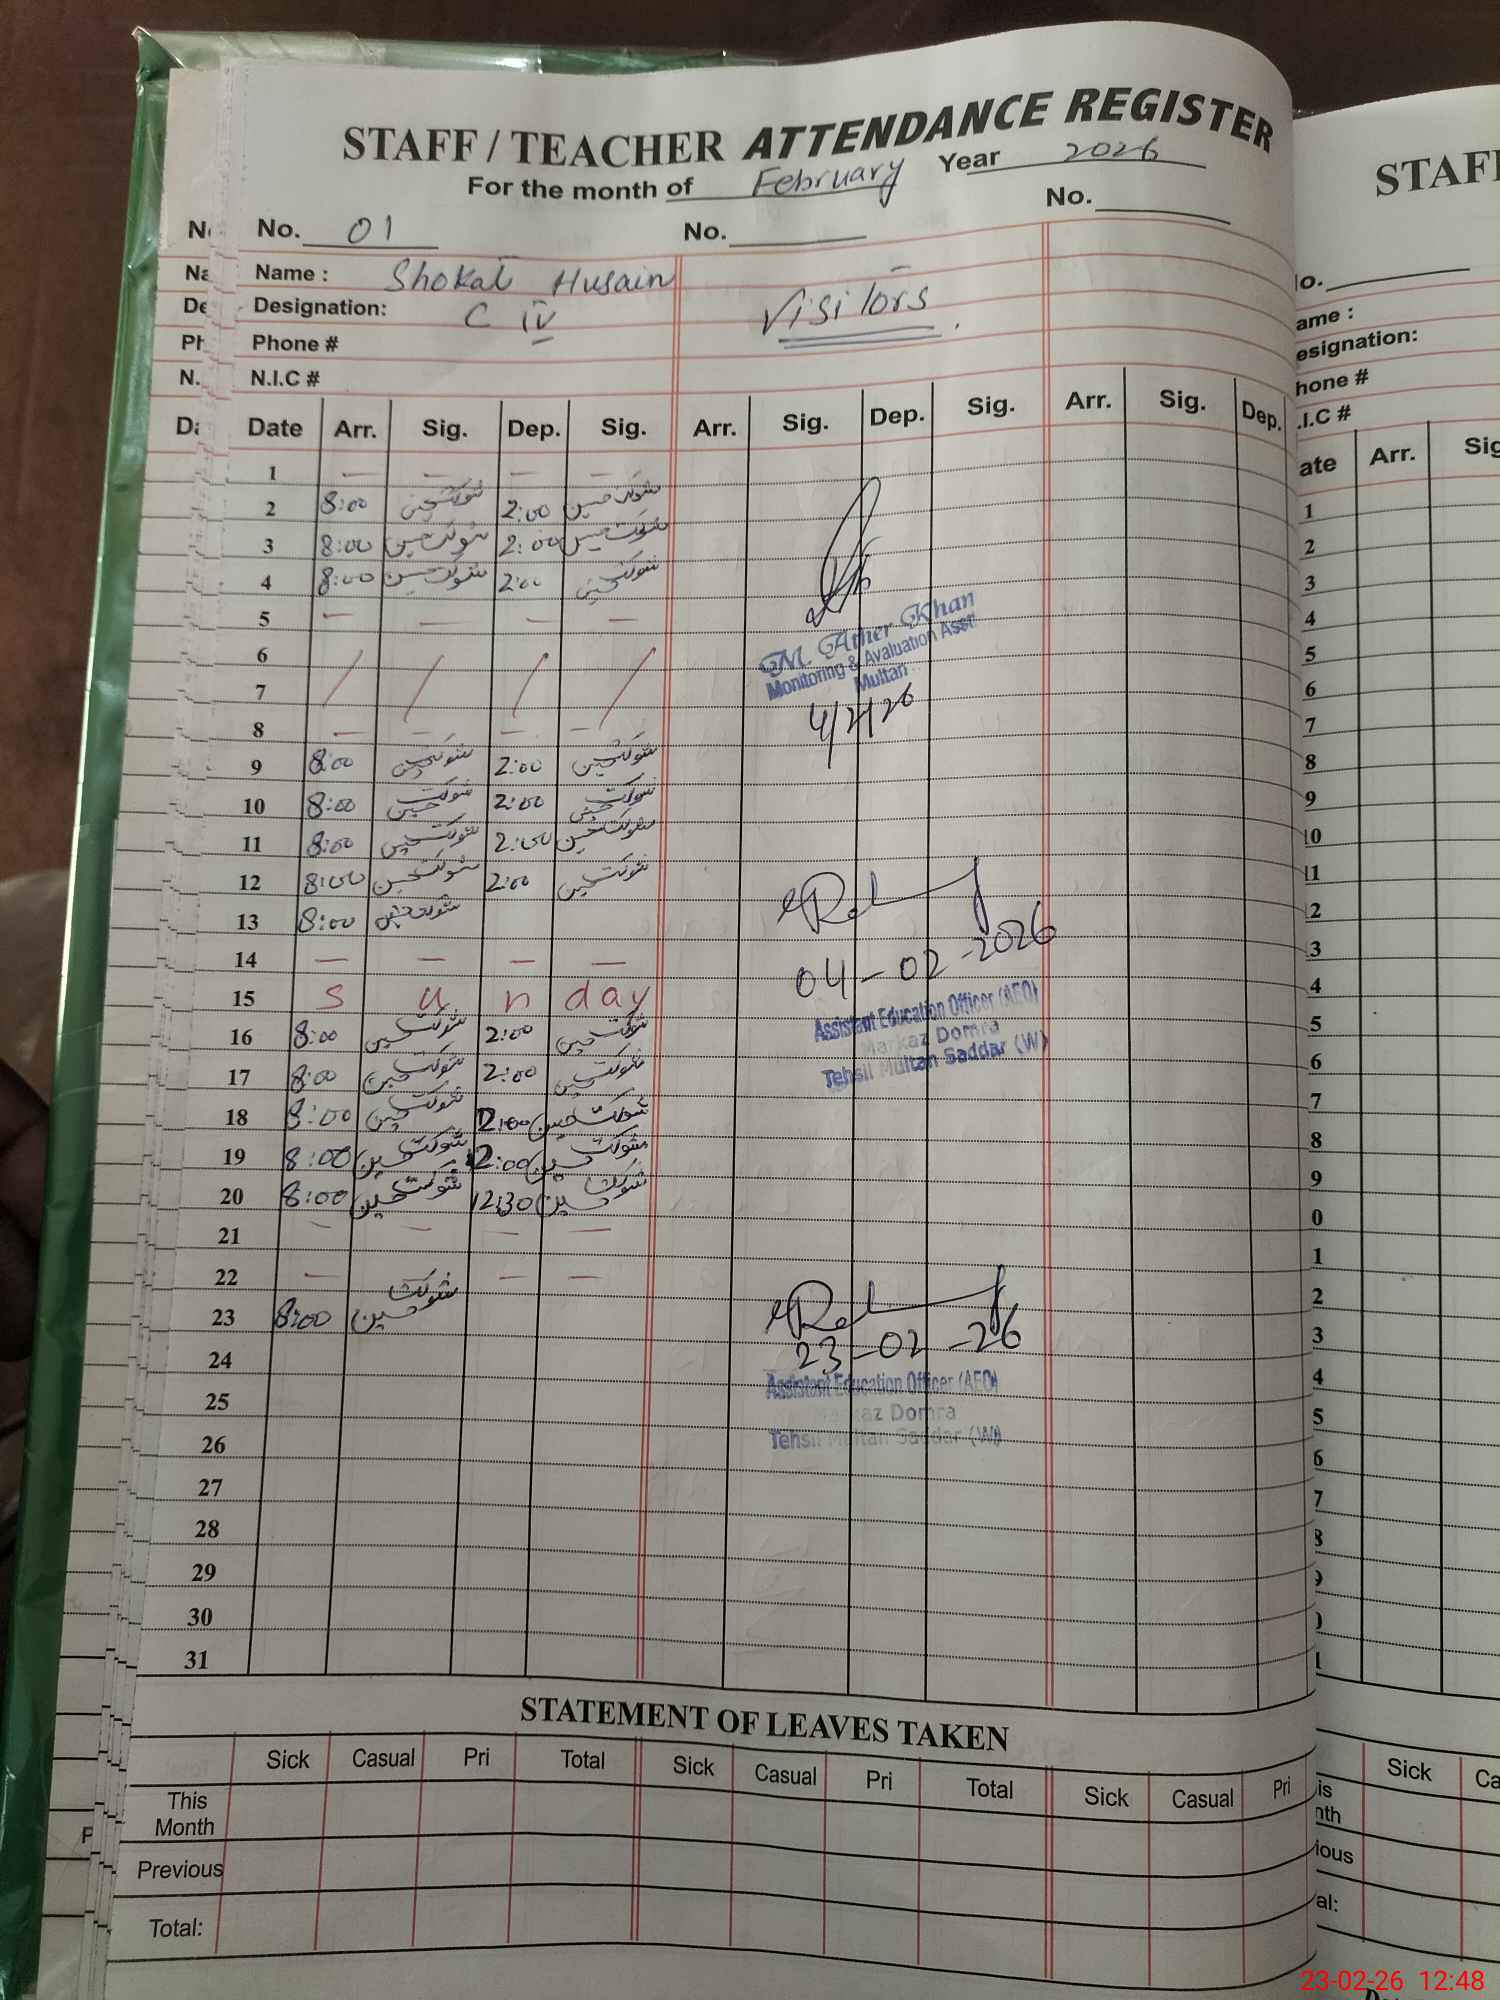 STAFF / TEACHER ATTENDANCE REGISTER
For the month of February Year 2026
No. 01 No. No.
Name : Shokat Husain Visitors
Designation: C IV
Phone #
N.I.C #
Date Arr. Sig. Dep. Sig. Arr. Sig. Dep. Sig. Arr. Sig. Dep.
1 — — — —
2 8:00 شوکت حسین 2:00 شوکت حسین
3 8:00 شوکت حسین 2:00 شوکت حسین
4 8:00 شوکت حسین 2:00 شوکت حسین
5 — — — —
6 / / / /
7
8 — — — —
9 8:00 شوکت حسین 2:00 شوکت حسین
10 8:00 شوکت حسین 2:00 شوکت حسین
11 8:00 شوکت حسین 2:00 شوکت حسین
12 8:00 شوکت حسین 2:00 شوکت حسین
13 8:00 شوکت حسین
14 — — — —
15 S u n day
16 8:00 شوکت حسین 2:00 شوکت حسین
17 8:00 شوکت حسین 2:00 شوکت حسین
18 8:00 شوکت حسین 12:00 شوکت حسین
19 8:00 شوکت حسین 12:00 شوکت حسین
20 8:00 شوکت حسین 12:30 شوکت حسین
21 — — — —
22 — — —
23 8:00 شوکت حسین
24
25
26
27
28
29
30
31
M. Ather Khan
Monitoring & Avaluation Asst:
Multan
4/2/26
04-02-2026
Assistant Education Officer (AEO)
Markaz Domra
Tehsil Multan Saddar (W)
23-02-26
Assistant Education Officer (AEO)
Markaz Domra
Tehsil Multan Saddar (W)
STATEMENT OF LEAVES TAKEN
Sick Casual Pri Total Sick Casual Pri Total Sick Casual Pri
This
Month
Previous
Total:
STAF
o.
ame :
esignation:
hone #
.I.C #
ate Arr. Sig
1
2
3
4
5
6
7
8
9
10
11
2
3
4
5
6
7
8
9
0
1
2
3
4
5
6
7
8
9
0
1
Sick Ca
is
nth
ious
al:
23-02-26 12:48